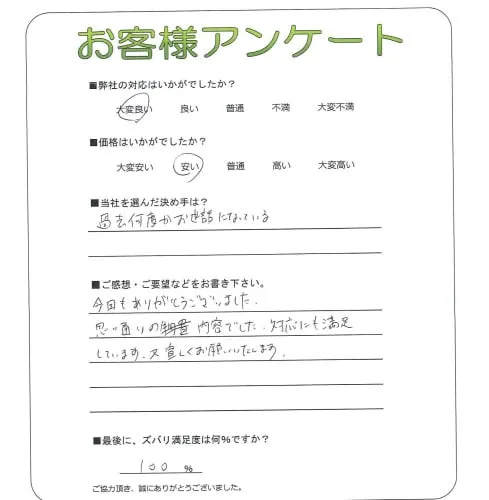 お客様アンケート
■弊社の対応はいかがでしたか？
大変良い 良い 普通 不満 大変不満
■価格はいかがでしたか？
大変安い 安い 普通 高い 大変高い
■当社を選んだ決め手は？
過去何度かお世話になっている
■ご感想・ご要望などをお書き下さい。
今回もありがとうございました.
思い通りの 内容でした. 対応にも満足
しています. 又宜しくお願いいたします.
■最後に、ズバリ満足度は何%ですか？
100 %
ご協力頂き、誠にありがとうございました。